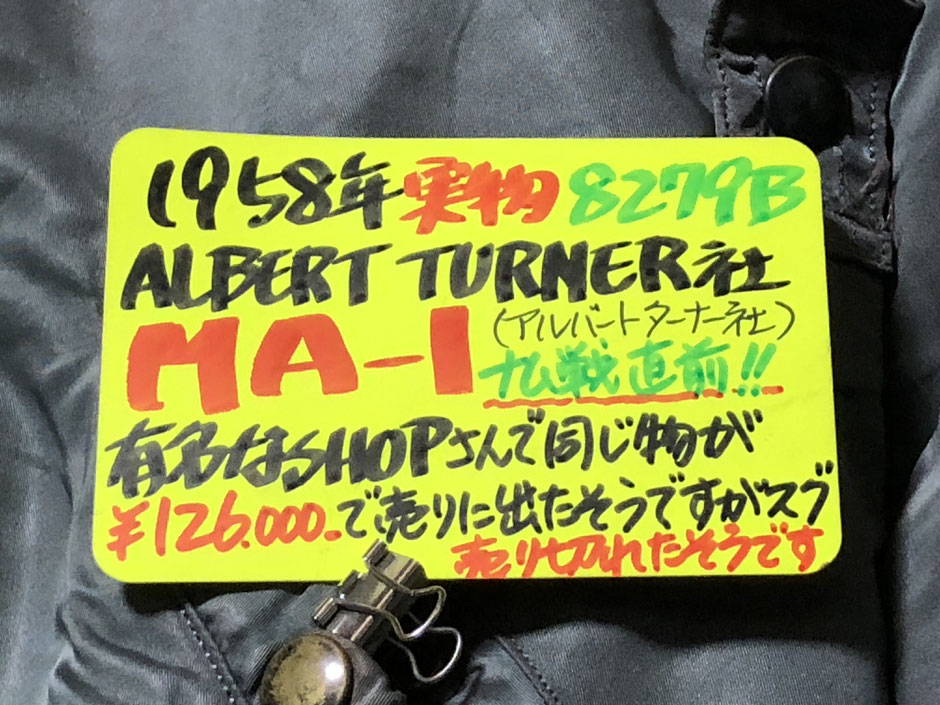 1958年実物 8279B
ALBERT TURNER社
(アルバートターナー社)
MA-1 ナム戦直前!!
有名なSHOPさんで同じ物が
¥126.000-で売りに出たそうですがスグ
売り切れたそうです